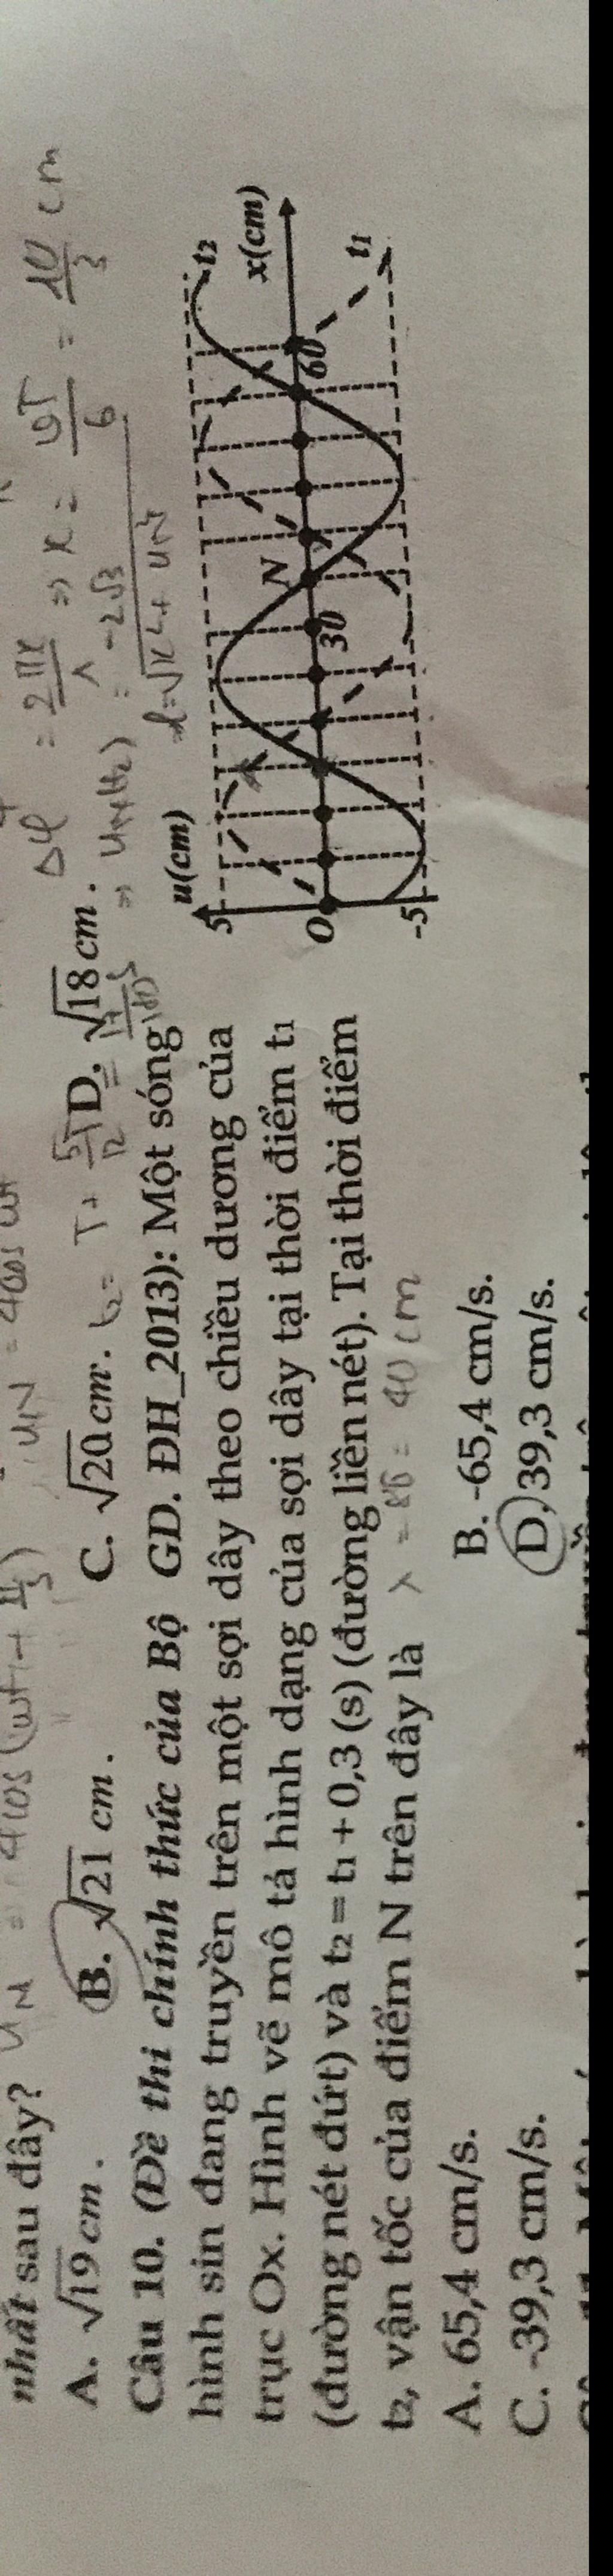 nhất sau đây?
A. √19 cm.
B. √21 cm.
C. √20 cm.
D. √18 cm.
Câu 10. (Đề thi chính thức của Bộ GD. ĐH_2013): Một sóng
hình sin đang truyền trên một sợi dây theo chiều dương của
trục Ox. Hình vẽ mô tả hình dạng của sợi dây tại thời điểm t₁
(đường nét đứt) và t₂ = t₁ + 0,3 (s) (đường liền nét). Tại thời điểm
t₂, vận tốc của điểm N trên dây là
λ = 8δ = 40 cm
A. 65,4 cm/s.
B. -65,4 cm/s.
C. -39,3 cm/s.
D. 39,3 cm/s.
u(cm)
5
O
-5
30
N
60
x(cm)
t₂
t₁
Δφ = 2πx/λ => x =
= 10/3 cm